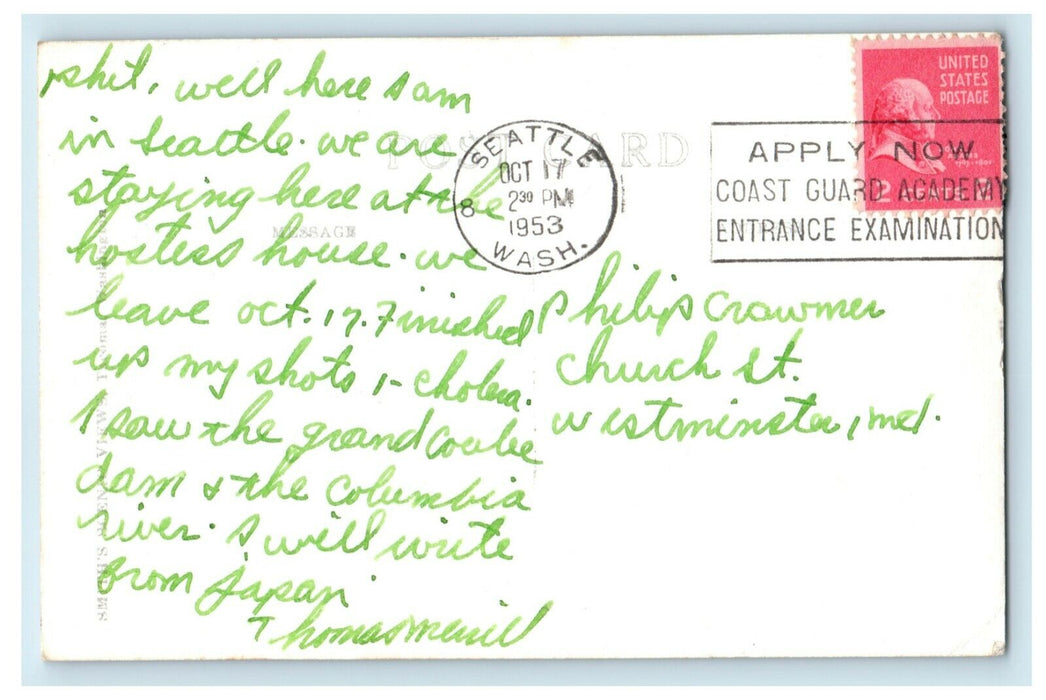 phil, well here I am
in seattle. we are
staying here at the
hostess house. we
leave oct. 17. Finished
up my shots 1- cholera.
I saw the grand coulee
dam & the columbia
river. I will write
from japan
Thomas Merrill
POST CARD
MESSAGE
SEATTLE
OCT 17
2 30 PM
1953
WASH.
8
UNITED
STATES
POSTAGE
2 CENTS
APPLY NOW
COAST GUARD ACADEMY
ENTRANCE EXAMINATION
Philip Crowmer
church st.
westminster, md.